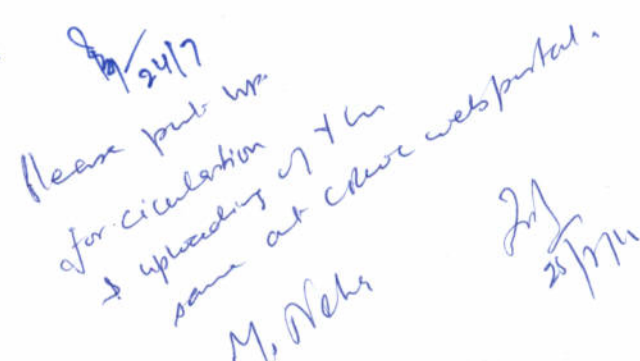 24/7
Please put up
for circulation
& uploading of the
same at webportal.
25/7/11
M. Neha